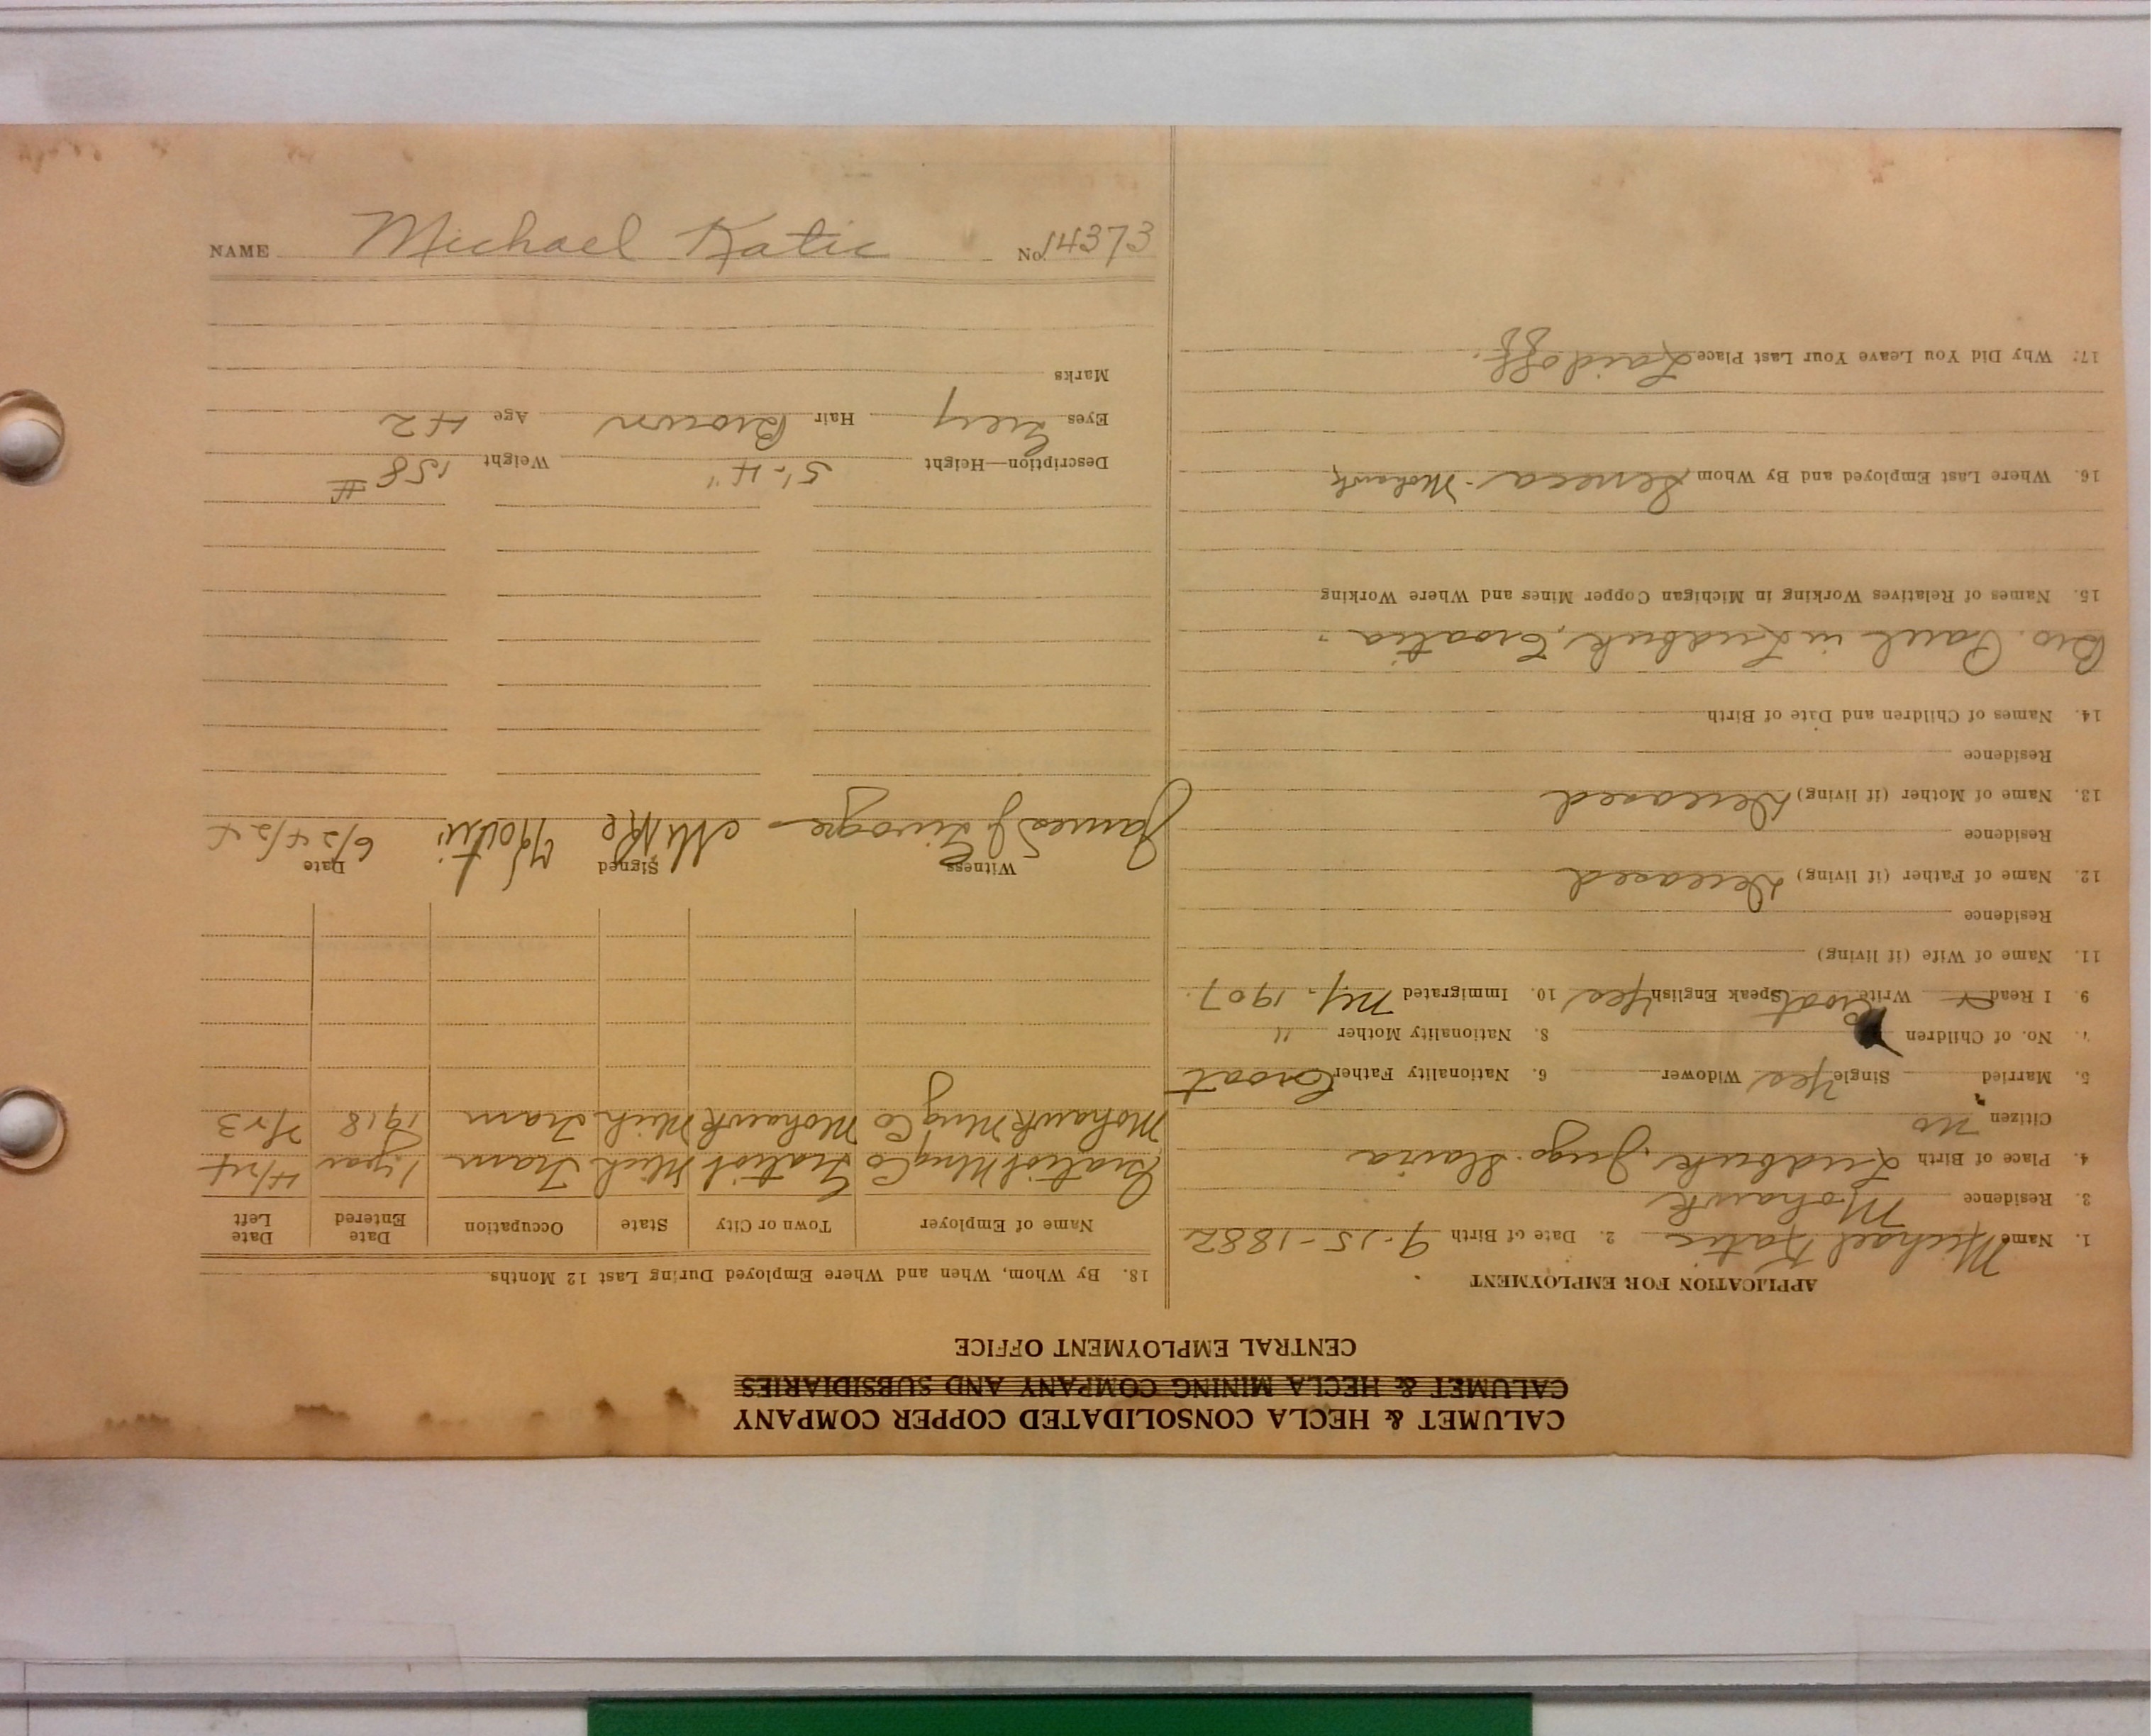 CALUMET & HECLA CONSOLIDATED COPPER COMPANY
CALUMET & HECLA MINING COMPANY AND SUBSIDIARIES
CENTRAL EMPLOYMENT OFFICE
APPLICATION FOR EMPLOYMENT
1. Name Michael Katic 2. Date of Birth 9-15-1882
3. Residence Mohawk
4. Place of Birth Jugo-Slavia
Citizen no
5. Married Single Yes Widower 6. Nationality Father Croat
7. No. of Children 8. Nationality Mother "
9 I Read Write Croat Speak English Yes 10. Immigrated My. 1907.
11. Name of Wife (if living)
Residence
12. Name of Father (if living) Deceased
Residence
13. Name of Mother (if living) Deceased
Residence
14. Names of Children and Date of Birth
Bro. Paul in Croatia
15. Names of Relatives Working in Michigan Copper Mines and Where Working
16. Where Last Employed and By Whom Seneca - Mohawk
17: Why Did You Leave Your Last Place Laid off.
18. By Whom, When and Where Employed During Last 12 Months
Name of Employer Town or City State Occupation Date Entered Date Left
Gratiot Mng Co Gratiot Mich Tram 1 year 4/24
Mohawk Mng Co Mohawk Mich Tram 1918 /23
Witness Signed Date
James J Mike 6/24/24
Description—Height 5'-4" Weight 158 #
Eyes Grey Hair Brown Age 42
Marks
NAME Michael Katic No. 14373